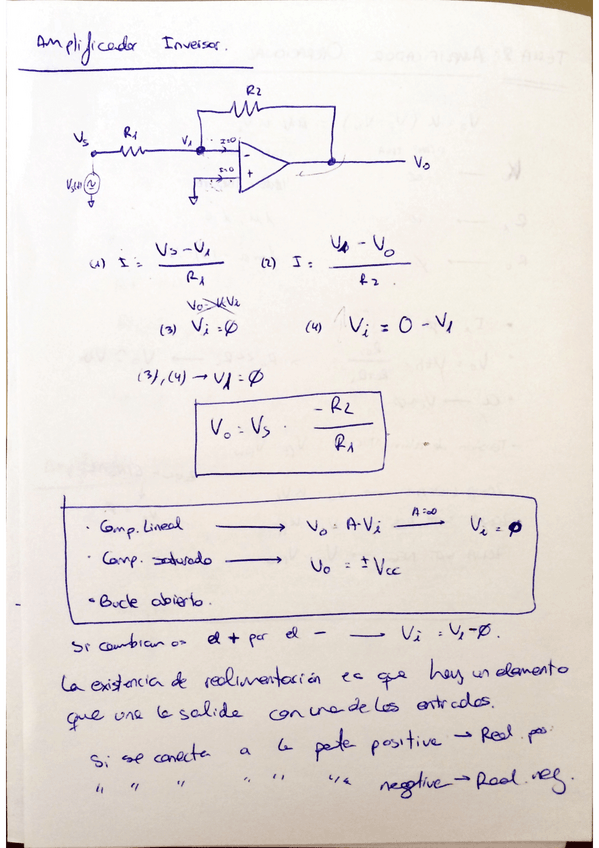 Amplificador Inversor.
R2
Vs R1 V1 I=0
-
I=0 +
Vo
Vs(t)
(1) I = Vs - V1 / R1 (2) I = V1 - Vo / R2.
Vo = KV2
(3) Vi = Ø (4) Vi = 0 - V1
(3), (4) → V1 = Ø
Vo = Vs · -R2 / R1
· Comp. Lineal → Vo = A·Vi A=∞ → Vi = Ø
· Comp. saturado → Vo = ± Vcc
· Bucle abierto.
Si cambiamos el + por el - → Vi = V1 - Ø.
La existencia de realimentación es que hay un elemento
que une la salida con una de las entradas.
Si se conecta a la pata positiva → Real. pos.
" " " " " " negativa → Real. neg.